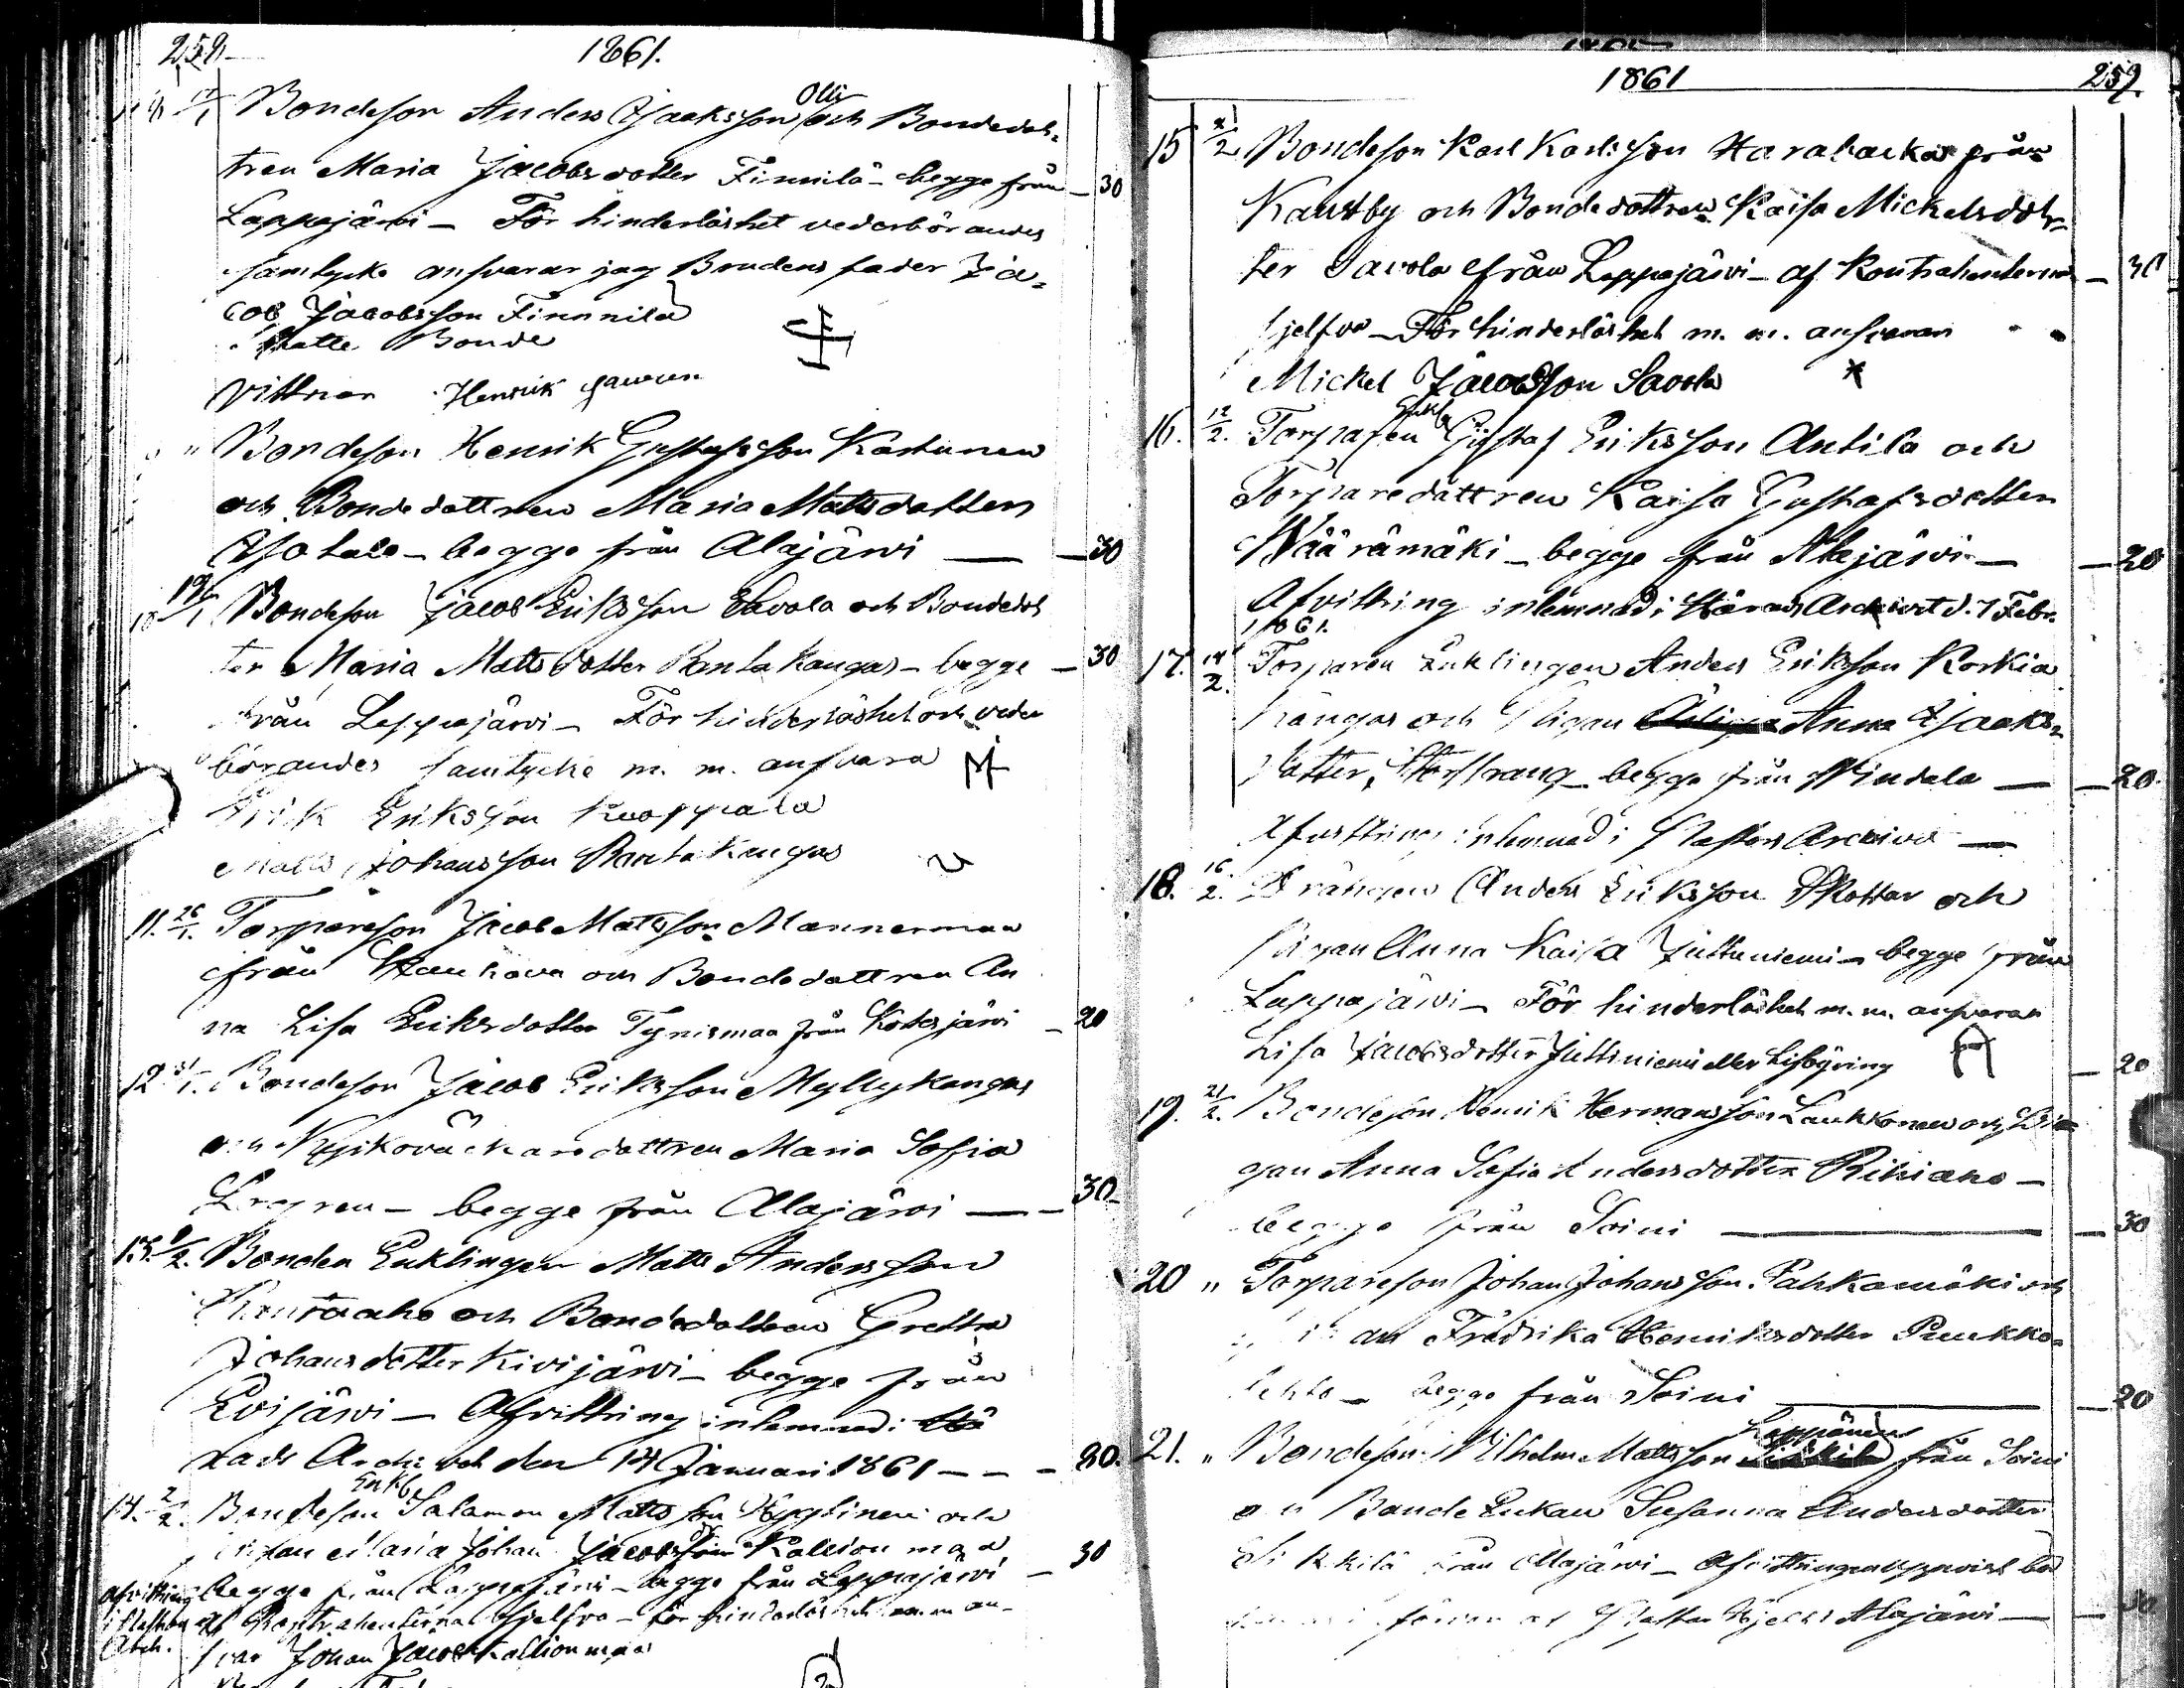 258
1861.
12/1 Bondeson Anders Isaaksson Olli och Bondedot=
tren Maria Jacobsdotter Finnilä - begge från - 30
Lappajärvi - För hinderlöshet vederbörandes
samtycke ansvarar jag Brudens fader Ja=
cob Jacobsson Finnilä
Matts Bonde
Vittnar Henrik
" Bondeson Henrik Gustafsson Kastunen
och Bondedottren Maria Mattsdotter
Isotalo - begge från Alajärvi — - 30
10 19/1 Bondeson Jacob Eriksson Savola och Bondedot
ter Maria Mattsdotter Rantakangas - begge - 30
från Lappajärvi - För hinderlöshet och veder
börandes samtycke m. m. ansvara
Erik Eriksson Kuoppala
Matts Johansson Rantakangas
11. 26/1. Torpareson Jacob Mattsson Mannermaa
från Kauhava och Bondedottren An
na Lisa Eriksdotter Tynismaa från Kortesjärvi - 20
12 31/1. Bondeson Jacob Eriksson Myllykangas
och Kyrkoväktaredottren Maria Sofia
Lregren - begge från Alajärvi — - 30
13. 2. Bonden Enklingen Matts Andersson
och Bondedottren Gretta
Johansdotter Kivijärvi - begge från
Evijärvi - Afvittring inlemnad i Hä
rads Archivet den 14 Januari 1861 - - - 30.
14. 2/2. Bondeson Enkl. Salamon Mattsson Hyytinen och
Pigan Maria Johan Jacobs Kallionmaa - 30
begge från Lappajärvi - begge från Lappajärvi
Afvittring i Pastors Arch.
af Kontrahenterna sjelfva - För hinderlöshet m. m. an-
svar Johan Jacob Kallionmaa
1861
259.
15 2 Bondeson Karl Karlsson Harabacka från
Kaustby och Bondedottren Kaisa Mickelsdot=
ter Savola från Lappajärvi - af Kontrahenterna - 30
sjelfva - För hinderlöshet m. m. ansvarar
Mickel Jacobsson Savola
16. 12/2. Torparen Enkl Gustaf Eriksson Antila och
Torparedottren Kaisa Gustafsdotter
Wäärämäki - begge från Alajärvi — - 20
Afvittring inlemnad i Härads Archivet d. 7 Febr.
1861.
17. 14/2. Torparen Enklingen Anders Eriksson Korkia
kangas och Pigan Anna Isaaks=
dotter Storstrang - begge från Vindala — - 20.
Afvittring inlemnad i Pastors Archivo —
18. 16/2. Drängen Anders Eriksson och
Pigan Anna Kaisa Juttuniemi - begge från
Lappajärvi - För hinderlöshet m. m. ansvarar
Lisa Jacobsdotter Juttiniemi eller Lisbyring - 20
19. 21/2. Bondeson Henrik Hermansson Laukkonen och Pi=
gan Anna Sofia Andersdotter Rihiaho -
begge från Soini — - 30
20 " Torpareson Johan Johansson Pahkamäki och
Pigan Fredrika Henriksdotter Puukko=
lehto - begge från Soini — - 20
21. " Bondeson Vilhelm Mattsson Leppänen från Soini
och Bonde Enkan Susanna Andersdotter
Sikkilä från Alajärvi - Afvittringen uppvist
af Pastor Alajärvi — - 30